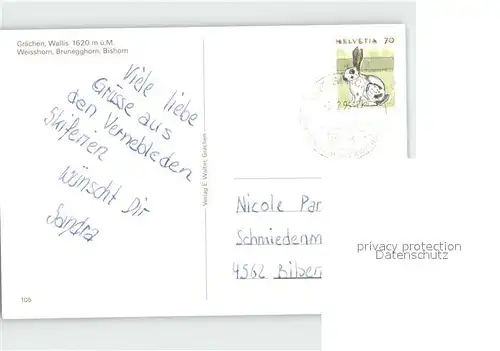 Grächen, Wallis 1620 m ü.M.
Weisshorn, Brunegghorn, Bishorn
Viele liebe
Grüsse aus
den Vernebleden
Skiferien
Wünscht Dir
Sandra
105
Verlag E. Walter, Grächen
HELVETIA 70
Nicole Par
Schmiedenm
4562 Biber
privacy protection
Datenschutz